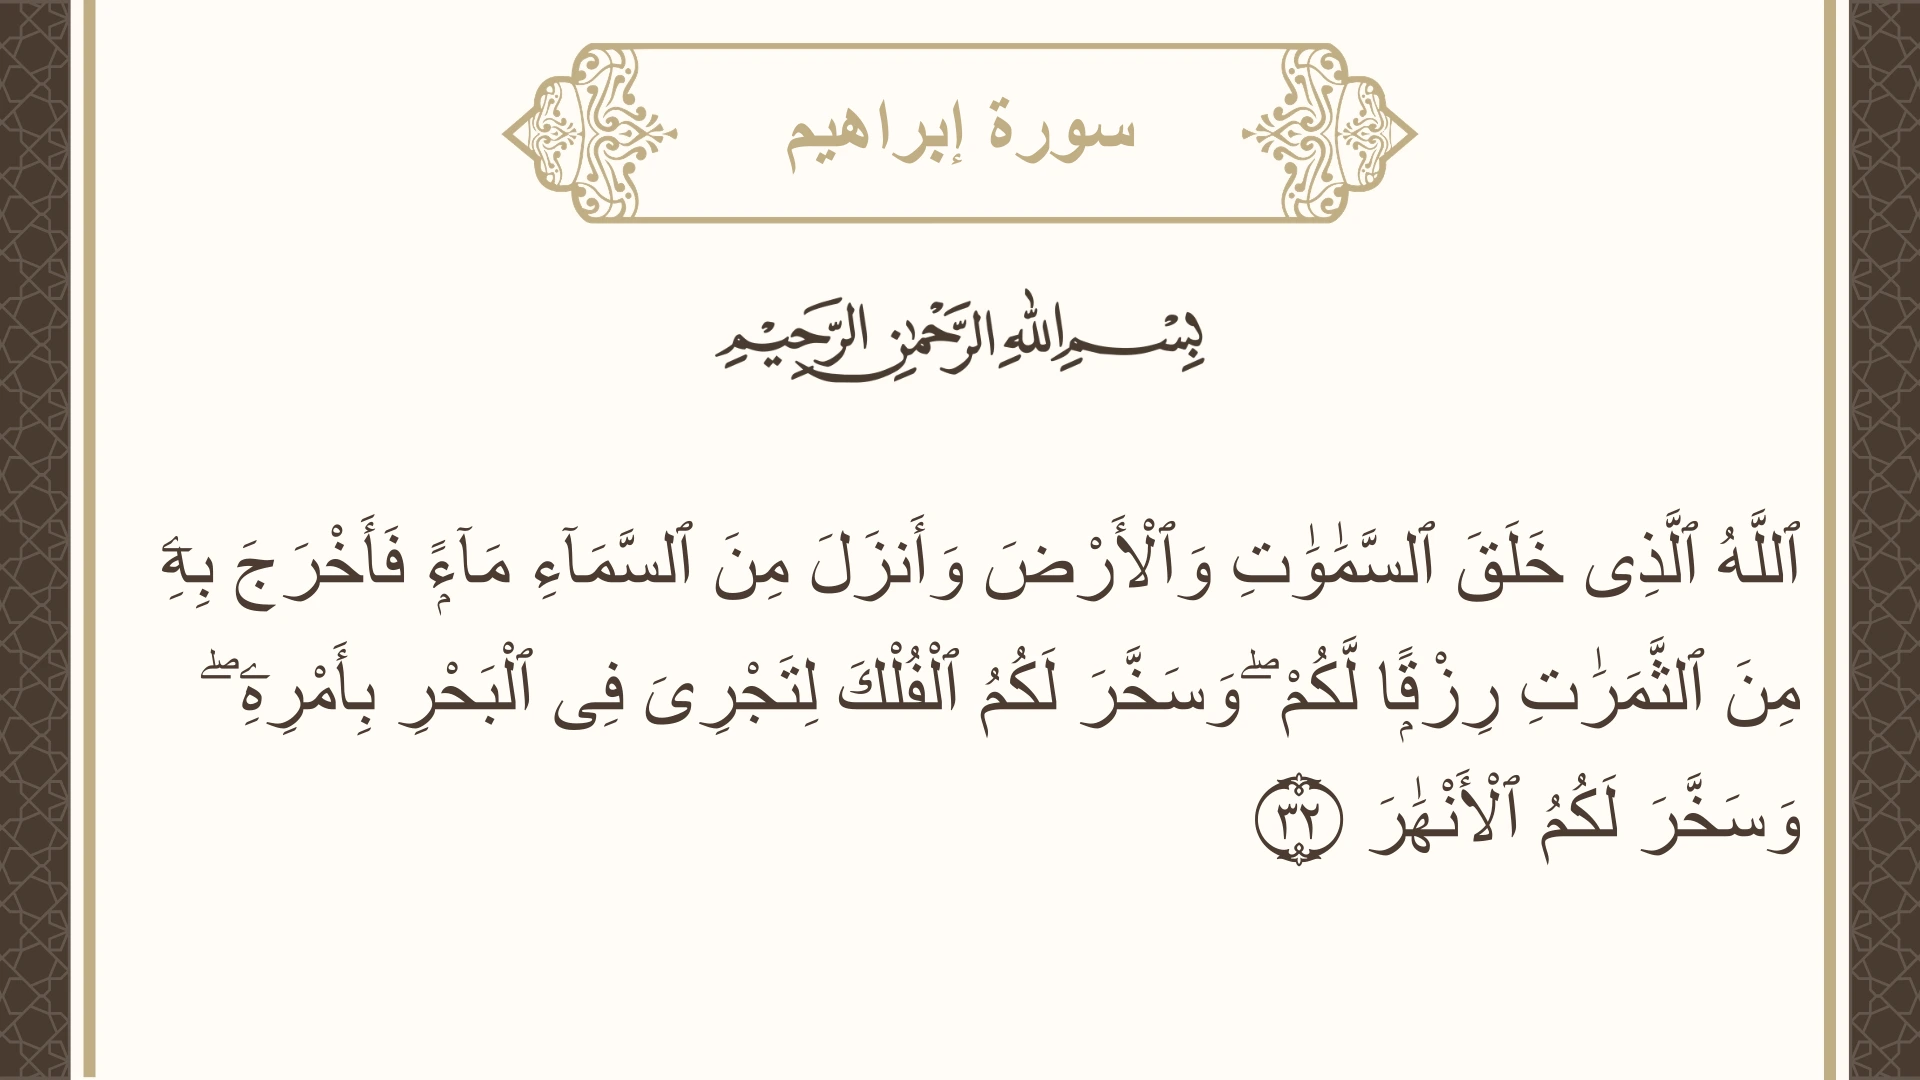 سورة إبراهيم
بِسْمِ اللهِ الرَّحْمٰنِ الرَّحِيْمِ
ٱللَّهُ ٱلَّذِى خَلَقَ ٱلسَّمَٰوَٰتِ وَٱلْأَرْضَ وَأَنزَلَ مِنَ ٱلسَّمَآءِ مَآءًۭ فَأَخْرَجَ بِهِۦٓ
مِنَ ٱلثَّمَرَٰتِ رِزْقًۭا لَّكُمْ ۖ وَسَخَّرَ لَكُمُ ٱلْفُلْكَ لِتَجْرِىَ فِى ٱلْبَحْرِ بِأَمْرِهِۦ ۖ
وَسَخَّرَ لَكُمُ ٱلْأَنْهَٰرَ ٣٢